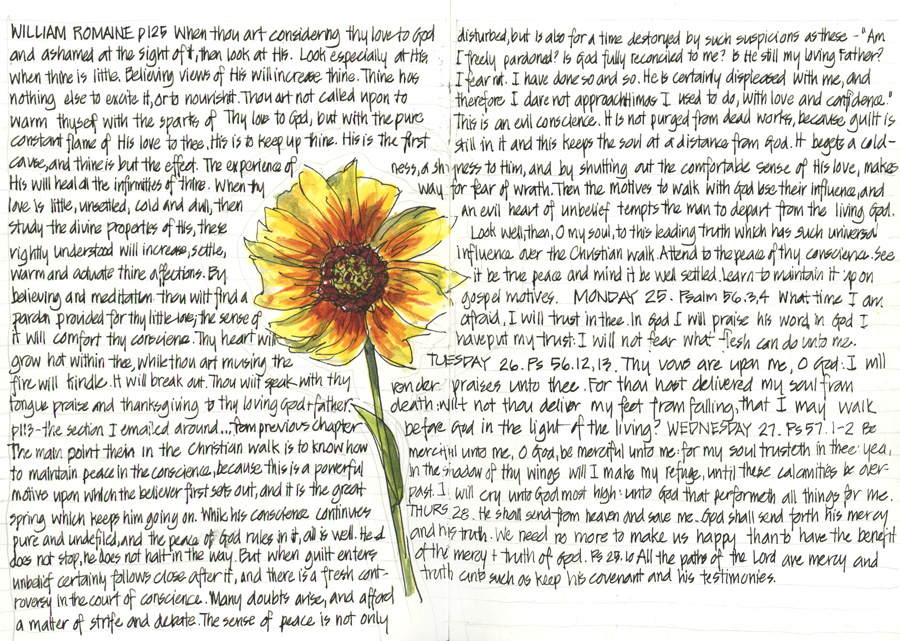 WILLIAM ROMAINE p125 When thou art considering thy love to God
and ashamed at the sight of it, then look at His. Look especially at His
when thine is little. Believing views of His will increase thine. Thine has
nothing else to excite it, or to nourish it. Thou art not called upon to
warm thyself with the sparks of Thy love to God, but with the pure
constant flame of His love to thee, His is to keep up thine. His is the first
cause, and thine is but the effect. The experience of
His will heal all the infirmities of thine. When thy
love is little, unsettled, cold and dull, then
study the divine properties of His, these
rightly understood will increase, settle,
warm and actuate thine affections. By
believing and meditation thou wilt find a
pardon provided for thy little love; the sense of
it will comfort thy conscience. Thy heart will
grow hot within thee, while thou art musing the
fire will kindle. It will break out. Thou wilt speak with thy
tongue praise and thanksgiving to thy loving God + father.
p113 - the section I emailed around... from previous chapter
The main point then in the Christian walk is to know how
to maintain peace in the conscience, because this is a powerful
motive upon which the believer first sets out, and it is the great
spring which keeps him going on. While his conscience continues
pure and undefiled, and the peace of God rules in it, all is well. He d
does not stop, he does not halt in the way. But when guilt enters
unbelief certainly follows close after it, and there is a fresh cont-
roversy in the court of conscience. Many doubts arise, and afford
a matter of strife and debate. The sense of peace is not only
disturbed, but is also for a time destoryed by such suspicions as these - "Am
I freely pardoned? Is God fully reconciled to me? Is He still my loving Father?
I fear not. I have done so and so. He is certainly displeased with me, and
therefore I dare not approach Him as I used to do, with love and confidence."
This is an evil conscience. It is not purged from dead works, because guilt is
still in it and this keeps the soul at a distance from God. It begets a cold-
ness, a shyness to Him, and by shutting out the comfortable sense of His love, makes
way for fear of wrath. Then the motives to walk with God lose their influence, and
an evil heart of unbelief tempts the man to depart from the living God.
Look well, then, O my soul, to this leading truth which has such universal
influence over the Christian walk. Attend to the peace of thy conscience. See
it be true peace and mind it be well settled. Learn to maintain it upon
gospel motives. MONDAY 25. Psalm 56.3,4 What time I am
afraid, I will trust in thee. In God I will praise his word, in God I
have put my trust: I will not fear what flesh can do unto me.
TUESDAY 26. Ps 56.12,13. Thy vows are upon me, O God: I will
render praises unto thee. For thou hast delivered my soul from
death: wilt not thou deliver my feet from falling, that I may walk
before God in the light of the living? WEDNESDAY 27. Ps 57.1-2 Be
merciful unto me, O God, be merciful unto me: for my soul trusteth in thee: yea,
in the shadow of thy wings will I make my refuge, until these calamities be over-
past. I will cry unto God most high: unto God that performeth all things for me.
THURS 28. He shall send from heaven and save me. God shall send forth his mercy
and his truth. We need no more to make us happy than to have the benefit
of the mercy + truth of God. Ps 25.10 All the paths of the Lord are mercy and
truth unto such as keep his covenant and his testimonies.